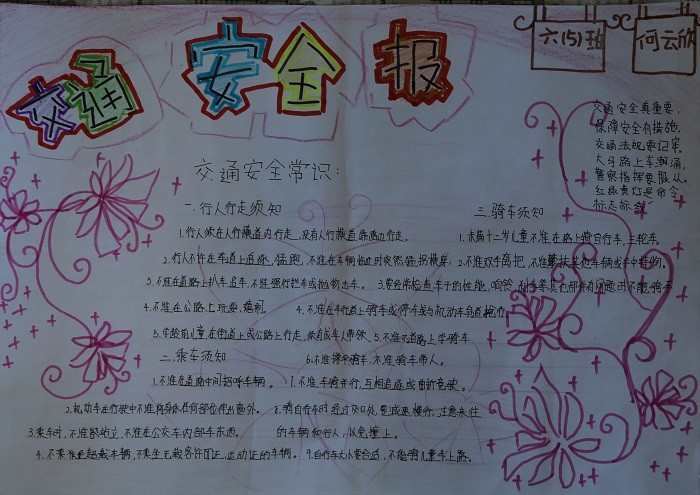 交通安全报
六(5)班
何云欣
交通安全真重要,
保障安全有措施,
交通法规要记牢,
大马路上车潮涌,
警察指挥要服从,
红绿黄灯是命令,
交通安全常识:
一.行人行走须知
1.行人须在人行横道内行走,没有人行横道靠路边行走。
2.行人不许在车道上追逐、猛跑,不准在车辆临近时突然猛拐横穿。
3.不准在道路上扒车、追车,不准强行拦车或抛物击车。
4.不准在公路上玩耍、嬉闹。
5.学龄前儿童在街道上或公路上行走,须有成年人带领。
二.乘车须知
1.不准在道路中间招呼车辆。
2.机动车在行驶中不准将身体任何部份伸出窗外。
3.乘车时,不准站立,不准在公交车内部车
4.不乘坐超载车辆,不乘坐无载客许可证、运动证的车辆。
三.骑车须知
1.未满十二岁儿童不准在路上骑自行车、三轮车。
2.不准双手离把,不准攀扶其他车辆或手中持物。
3.要经常检查车子的性能,响铃、刹车
4.不准在车行道上骑车或停车或与机动车争道抢行。
5.不准在道路上学骑车。
6.不准骑车带人。
7.不准车骑并行、互相追逐或曲折竞驶。
8.骑自行车时经过交叉处,要减速慢行、注意来往
的车辆和行人,以免撞上。
9.自行车大小要合适,不能骑儿童车上路。